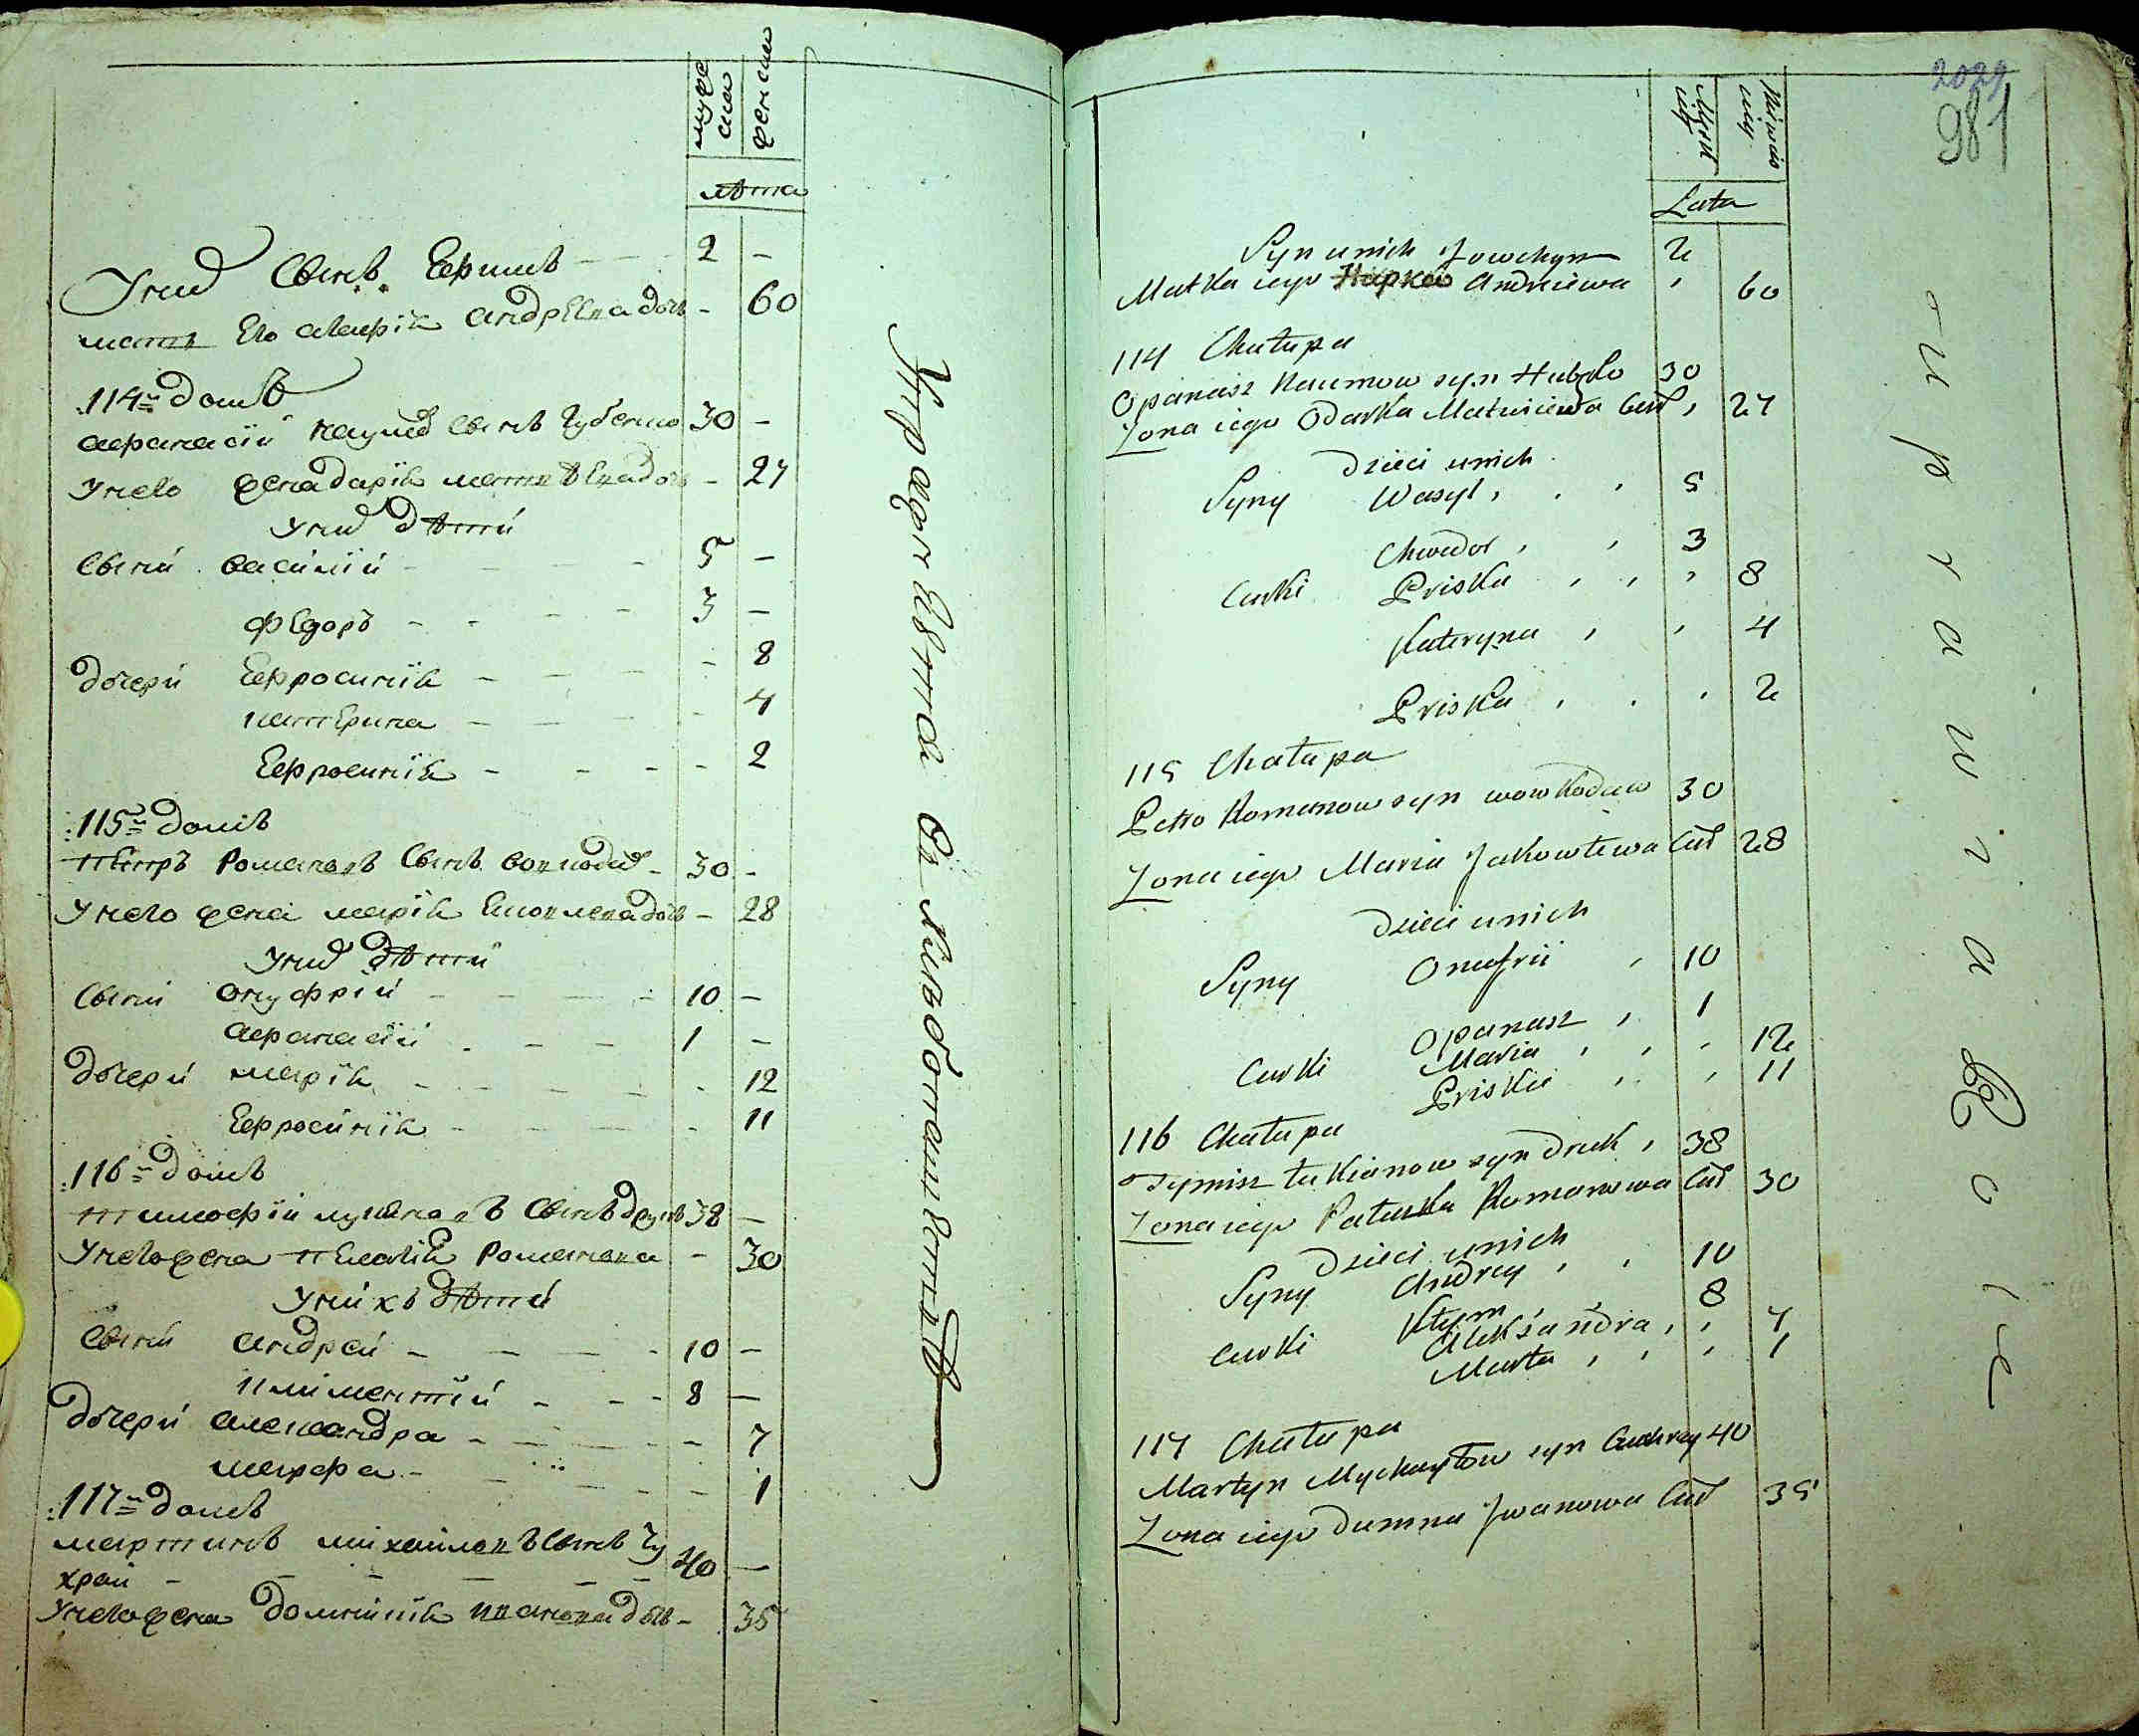 муже
ска
женска
лѣта
Уних Сынъ Ефимъ 2 -
мать Его Марія андрЕева дочь - 60
114й домъ
афанасій наумов Сынъ Губенко 30 -
унего жена дарія матвѣЕва дочь - 27
уних дѣти
Сыни василій 5 -
фЕдоръ 3 -
дочери Ефросинія - 8
катЕрина - 4
Ефросинія - 2
115й домъ
пЕтръ Романовъ Сынъ вовкодав 30 -
унего жена марія Яковлева дочь - 28
уних дѣти
Сыни онуфрій 10 -
афанасій 1 -
дочери марія - 12
Ефросинія - 11
116й домъ
тимофій лукянавъ Сынъ друкъ 38 -
унего жена пЕлагія Романова - 30
унихъ дѣти
Сыни андрей 10 -
климентій 8 -
дочери александра - 7
марфа - 1
117й домъ
мартинъ михайловъ Сынъ Чу
храй 40 -
унего жена домникія ивановна дочь - 35
2029
981
Męsk
iey
Lata
Syn unich Jowchym 2
Matka iego Andreiewa 60
114 Chałupa
Opanasz Naumow syn Hubko 30
Zona iego Odarka Matwieiewa Cur 27
Dzieci unich
Syny Wasyl 5
Chwedor 3
Curki Priska 8
Kateryna 4
Priska 2
115 Chałupa
Petro Romanow syn wowkodaw 30
Zona iego Maria Jakowlewa Cur 28
Dzieci unich
Syny Onufrii 10
Opanasz 1
Curki Maria 12
Priska 11
116 Chałupa
Tymisz Łukianow syn Druk 38
Zona iego Romanowa Cur 30
Dzieci unich
Syny Andrey 10
Kłym 8
Curki Aleksandra 7
Marta 1
117 Chałupa
Martyn Mychayłow syn Czuchray 40
Zona iego Dumna Jwanowa Cur 35